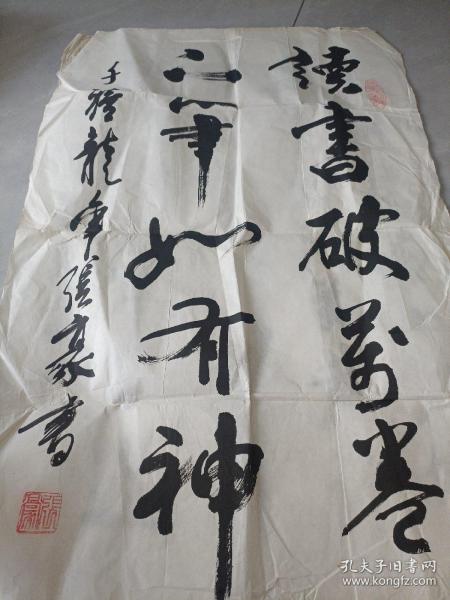 讀書破萬卷
下筆如有神
千禧龍年張豪書
張豪
孔夫子旧书网
www.kongfz.com